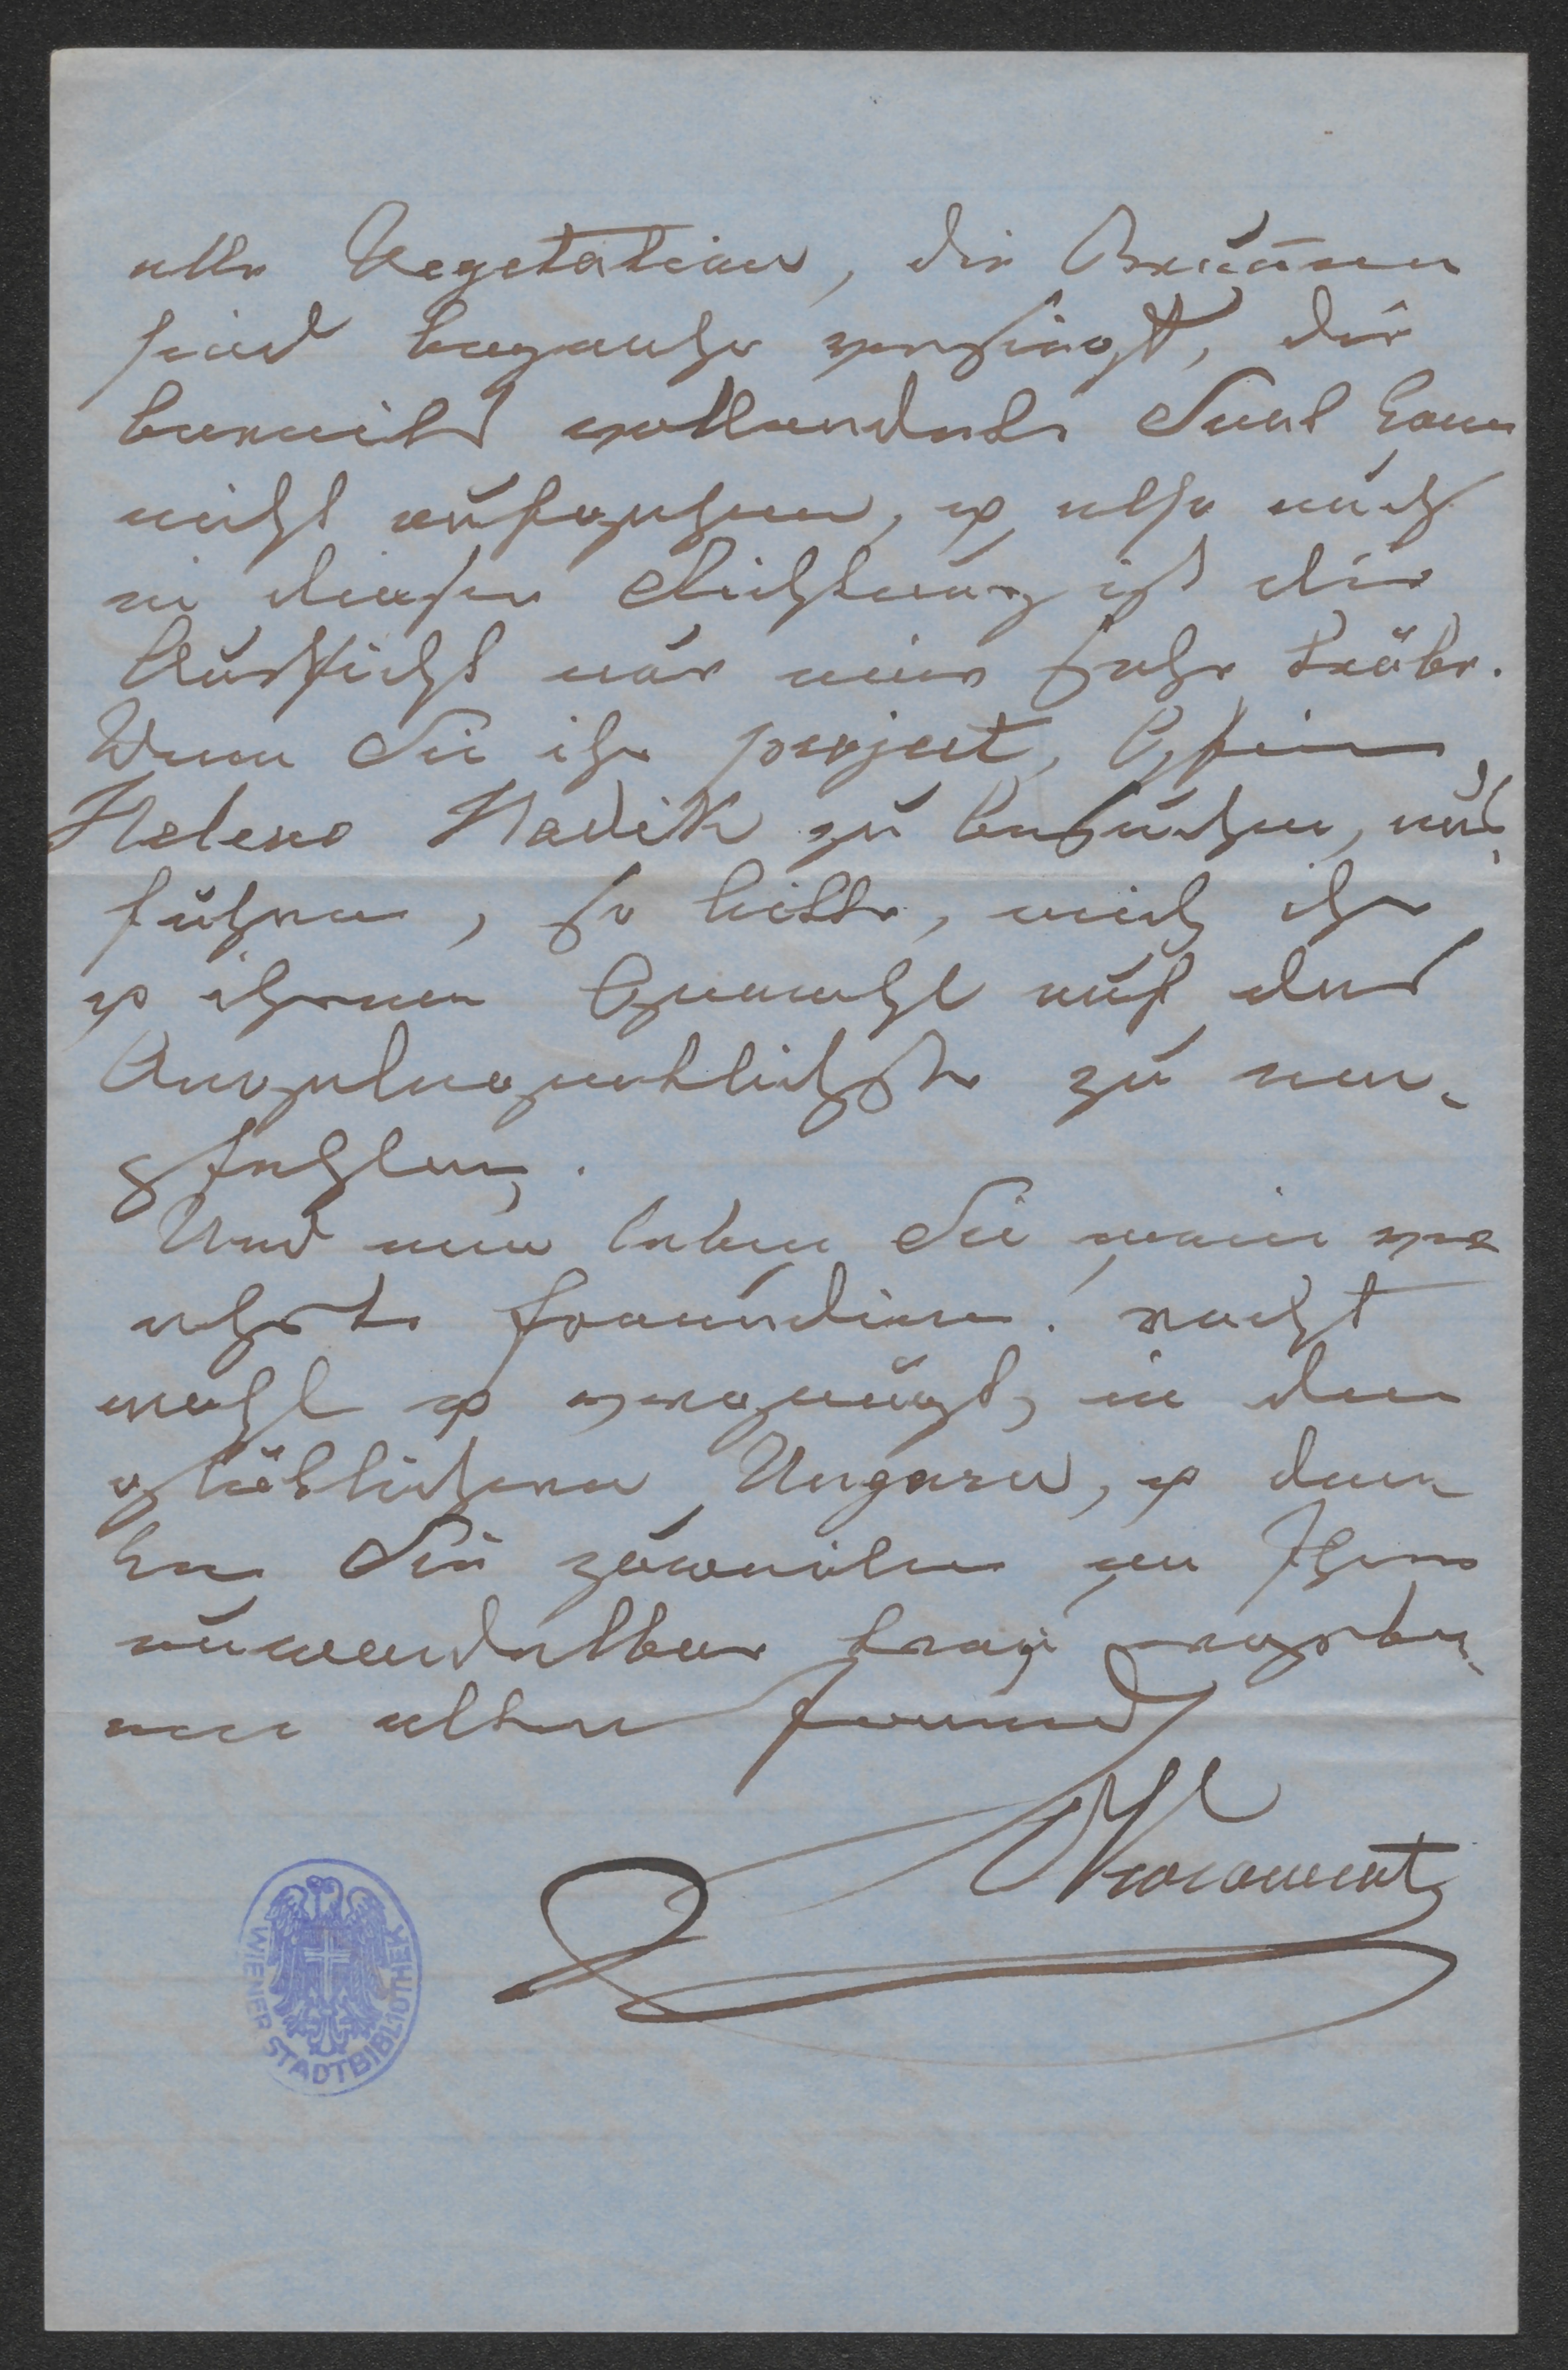 alle Vegetation, die Brunnen
sind beynahe versiegt, die
bereits vollendete Saat kann
nicht aufgehen, & also auch
in dieser Richtung ist die
Aussicht nur eine sehr trübe.
Wenn Sie ihr project, Gfin
Helene Hadik zu besuchen, aus-
führen, so bitte, mich ihr
& ihrem Gemahl auf das
Angelegentlichste zu em-
pfehlen.
Und nun leben Sie meine ver
ehrte Freundinn! recht
wohl & vergnügt, in dem
glücklichern Ungarn, & den-
ken Sie zuweilen an Ihren
unwandelbar treu ergebe-
nen alten Freund
WIENER STADTBIBLIOTHEK